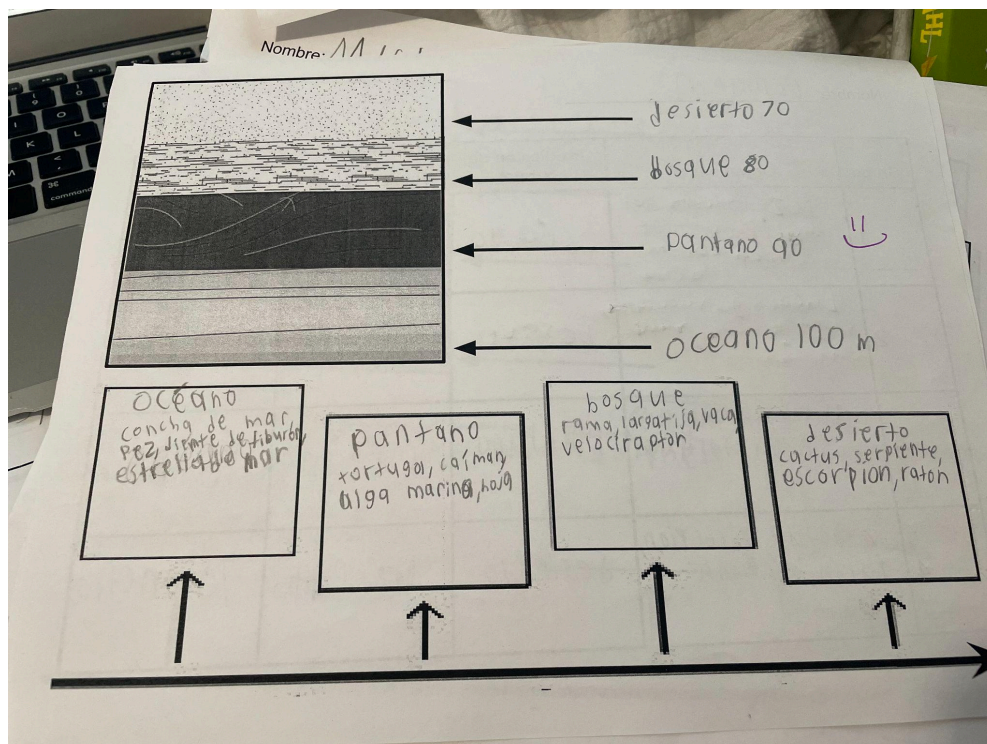 Nombre:
desierto 70
bosque 80
pantano 90
oceano 100 m
océano
concha de mar,
pez, diente de tiburón,
estrella de mar
pantano
tortuga, caíman,
alga marina, hoja
bosque
rama, largatija, vaca,
velociraptor
desierto
cactus, serpiente,
escorpion, raton
command